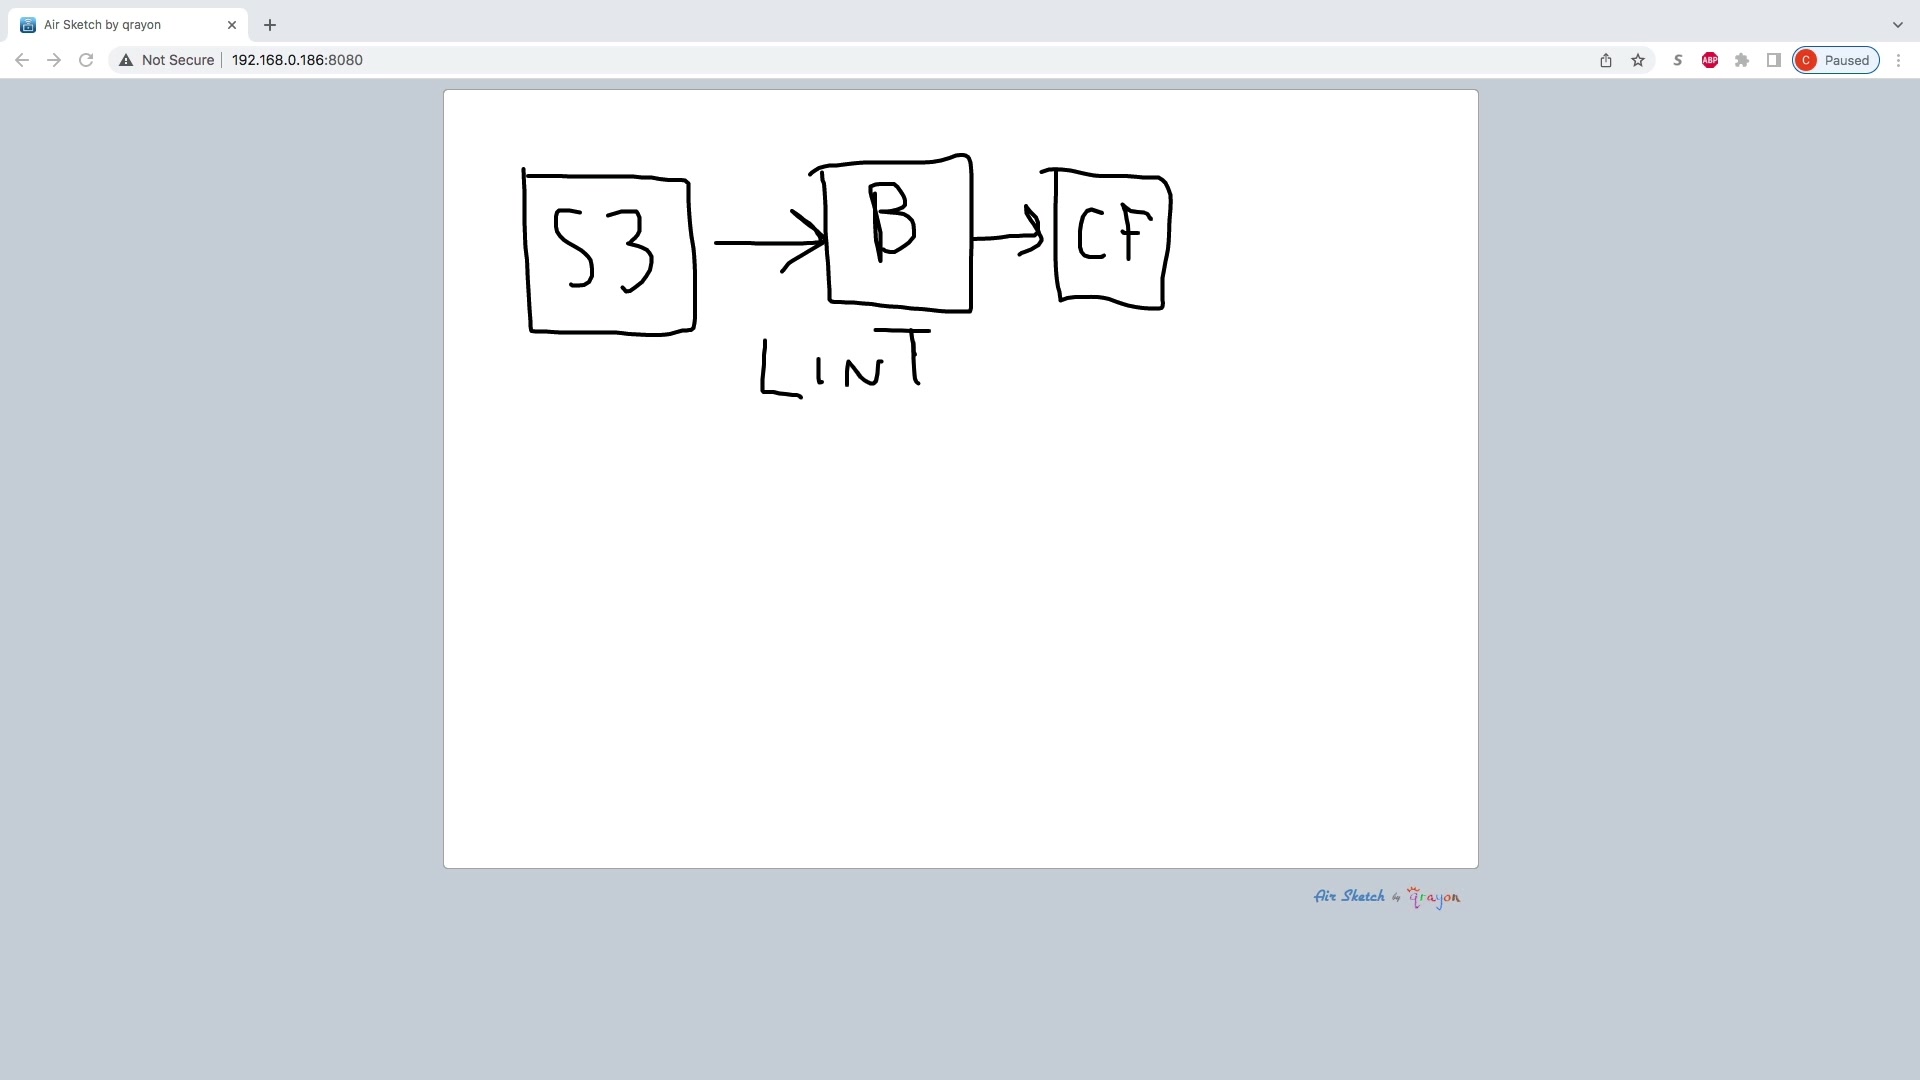 Air Sketch by qrayon
Not Secure
192.168.0.186:8080
S
ABP
C
Paused
S3
B
CF
LinT
Air Sketch by qrayon